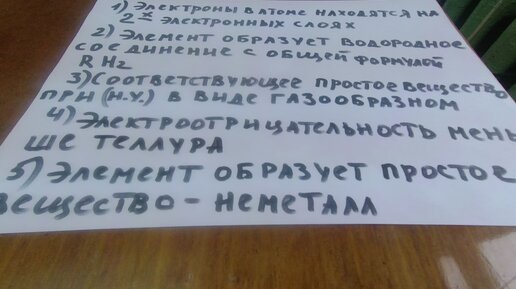 1) Электроны в атоме находятся на
2х электронных слоях
2) Элемент образует водородное
соединение с общей формулой
RH2
3) Соответствующее простое вещество
при (н.у.) в виде газообразном
4) Электроотрицательность мень
ше теллура
5) Элемент образует простое
вещество - неметалл